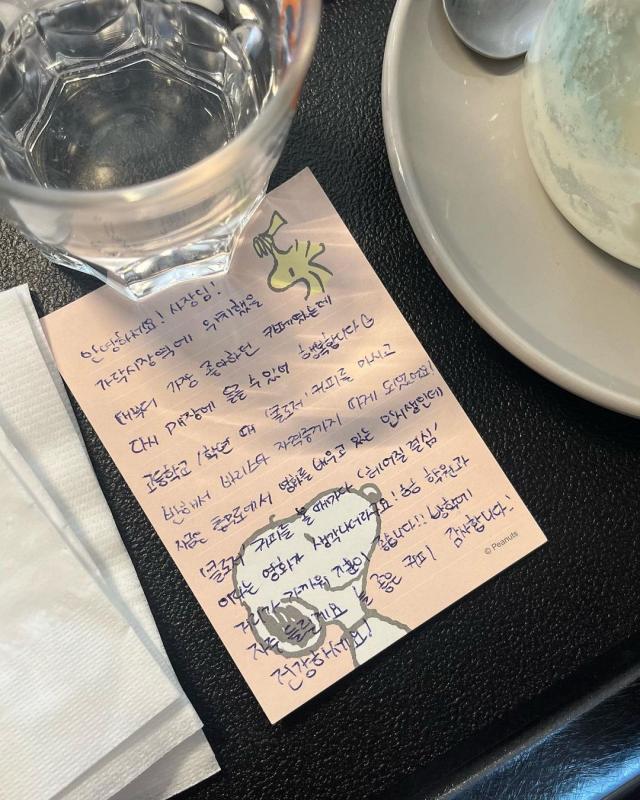 안녕하세요! 사장님!
가락시장역에 위치했을
때부터 가장 좋아하던 카페였는데
다시 매장에 올 수 있어 행복합니다
고등학교 1학년 때 '클로저' 커피를 마시고
반해서 바리스타 자격증까지 따게 되었어요!
지금은 충무로에서 영화를 배우고 있는 입시생인데
'클로저' 커피를 올 때마다 '헤어질 결심'
이라는 영화가 생각나더라고요! 항상 학원과
거리가 가까워 자주 합니다!! 방학에
자주 들릴게요 늘 좋은 커피 감사합니다!
건강하세요!
© Peanuts